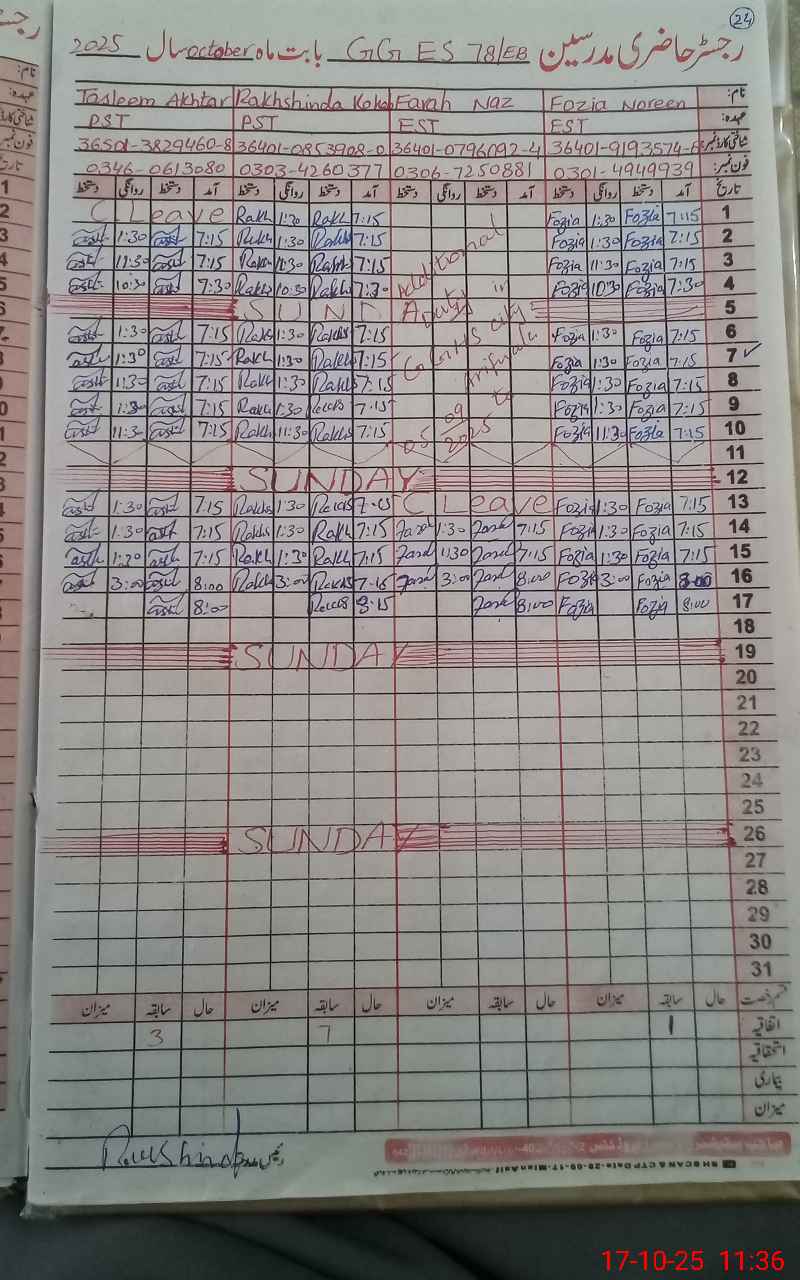 24
رجسٹر حاضری مدرسین GGES 78/EB بابت ماہ october سال 2025
نام: Fozia Noreen Farah Naz Rakhshinda Kokab Tasleem Akhtar
عہدہ: EST EST PST PST
شناختی کارڈ نمبر: 36401-9193574-6 36401-0796092-4 36401-0853908-0 36501-3829460-8
فون نمبر: 0301-4949939 0306-7250881 0303-4260377 0346-0613080
تاریخ آمد دستخط روانگی دستخط آمد دستخط روانگی دستخط آمد دستخط روانگی دستخط آمد دستخط روانگی دستخط
1 7:15 Fozia 1:30 Fozia 7:15 Rakh 1:30 Rakh C Leave
2 7:15 Fozia 1:30 Fozia 7:15 Rakhs 1:30 Rakhs 7:15 1:30
3 7:15 Fozia 11:30 Fozia 7:15 Rakhs 11:30 Rakhs 7:15 11:30
4 7:30 Fozia 10:30 Fozia 7:30 Rakhs 10:30 Rakhs 7:30 10:30
5 SUNDA
Additional Duty in GGHS city Arifwala 05 09 2025 to
6 7:15 Fozia 1:30 Fozia 7:15 Rakhs 1:30 Rakhs 7:15 1:30
7 7:15 Fozia 1:30 Fozia 7:15 Rakhs 1:30 Rakh 7:15 1:30
8 7:15 Fozia 1:30 Fozia 7:15 Rakhs 1:30 Rakh 7:15 11:30
9 7:15 Fozia 1:30 Fozia 7:15 1:30 Rakh 7:15 1:30
10 7:15 Fozia 11:30 Fozia 7:15 Rakhs 11:30 Rakh 7:15 11:30
11
12 SUNDAY
13 7:15 Fozia 1:30 Fozia C Leave 1:30 Rakhs 7:15 1:30
14 7:15 Fozia 1:30 Fozia 7:15 Farah 1:30 Farah 7:15 Rakh 1:30 Rakhs 7:15 1:30
15 7:15 Fozia 1:30 Fozia 7:15 Farah 1:30 Farah 7:15 Rakh 1:30 Rakh 7:15 1:30
16 8:00 Fozia 3:00 Fozia 8:00 Farah 3:00 Farah Rakhs 3:00 Rakh 8:00 3:00
17 8:00 Fozia Fozia 8:00 Farah 8:15 8:00
18
19 SUNDAY
20
21
22
23
24
25
26 SUNDAY
27
28
29
30
31
قسم رخصت حال سابقہ میزان حال سابقہ میزان حال سابقہ میزان حال سابقہ میزان
اتفاقیہ 1 7 3
استحقاقیہ
بیماری
میزان
Rakhshinda
17-10-25 11:36